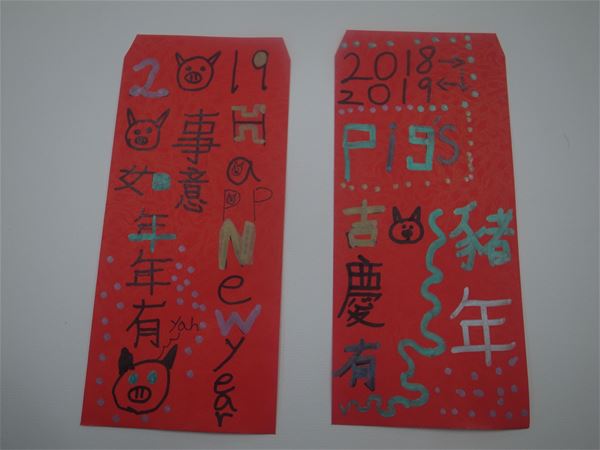 2 19
事
如意
年
年
有
yah
Happ New year
2018→
2019←
Pig's
豬年
吉慶有